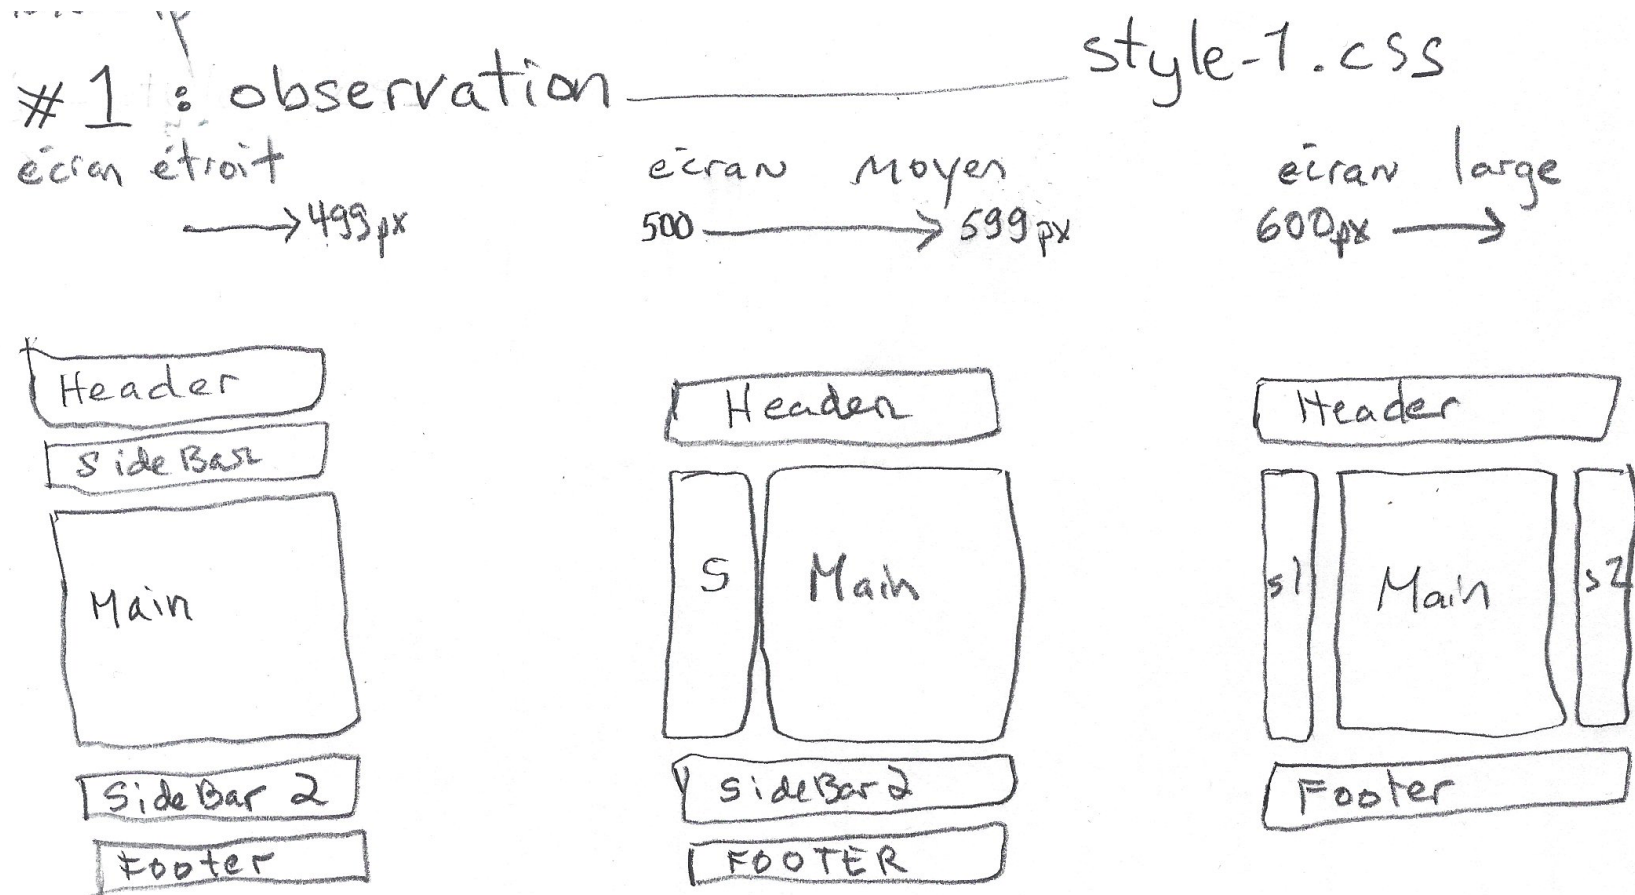 #1 : observation style-1.css
écran étroit
→ 499px
écran moyen
500 → 599px
écran large
600px →
Header
SideBar
Main
SideBar 2
Footer
Header
S
Main
SideBar 2
FOOTER
Header
S1
Main
S2
Footer